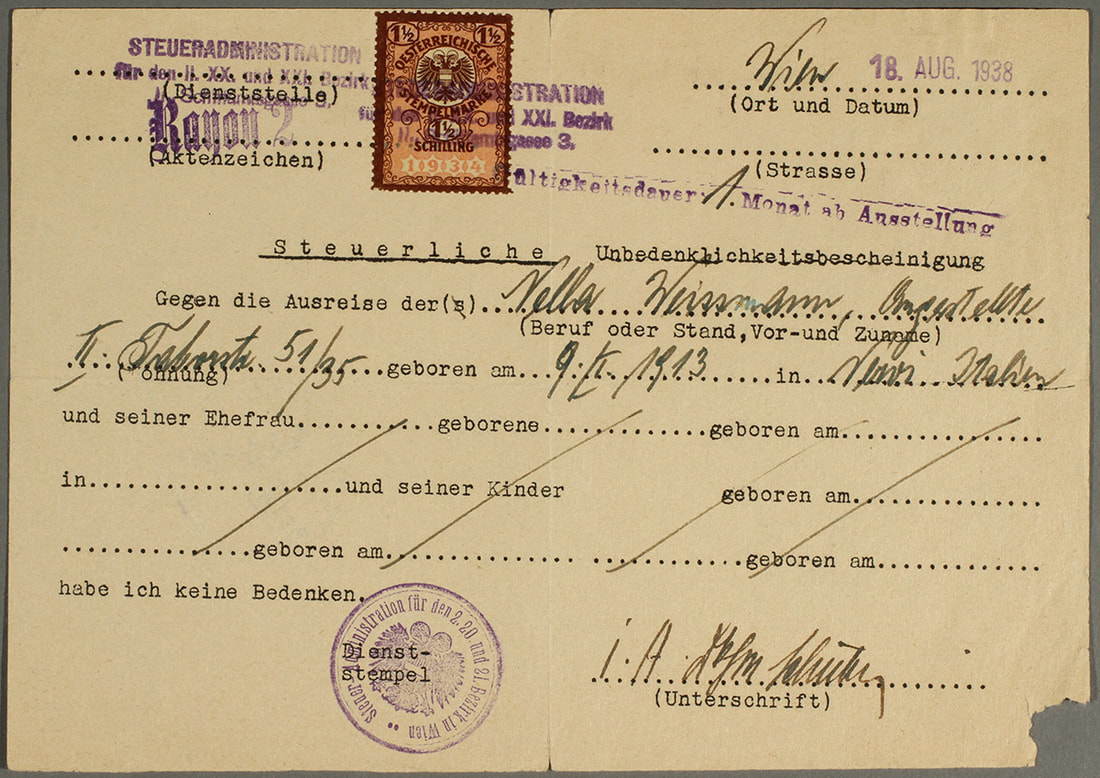 STEUERADMINISTRATION
für den II. XX. und XXI. Bezirk
(Dienststelle)
Rayon 2
(Aktenzeichen)
1½ 1½
OESTERREICHISCHE
STEMPELMARKE
1½
SCHILLING
1934
ISTRATION
und XXI. Bezirk
gasse 3.
Wien 18. AUG. 1938
(Ort und Datum)
(Strasse)
ültigkeitsdauer: 1. Monat ab Ausstellung
Steuerliche Unbedenklichkeitsbescheinigung
Gegen die Ausreise der(s) Nella Weissmann, Angestellte
(Beruf oder Stand, Vor-und Zuname)
II. Taborstr. 51/35 geboren am 9. II. 1913 in Nervi Italien
( ohnung)
und seiner Ehefrau geborene geboren am
in und seiner Kinder geboren am
geboren am geboren am
habe ich keine Bedenken.
Steueradministration für den 2. 20. und 21. Bezirk in Wien
Dienst-
stempel
i. A.
(Unterschrift)